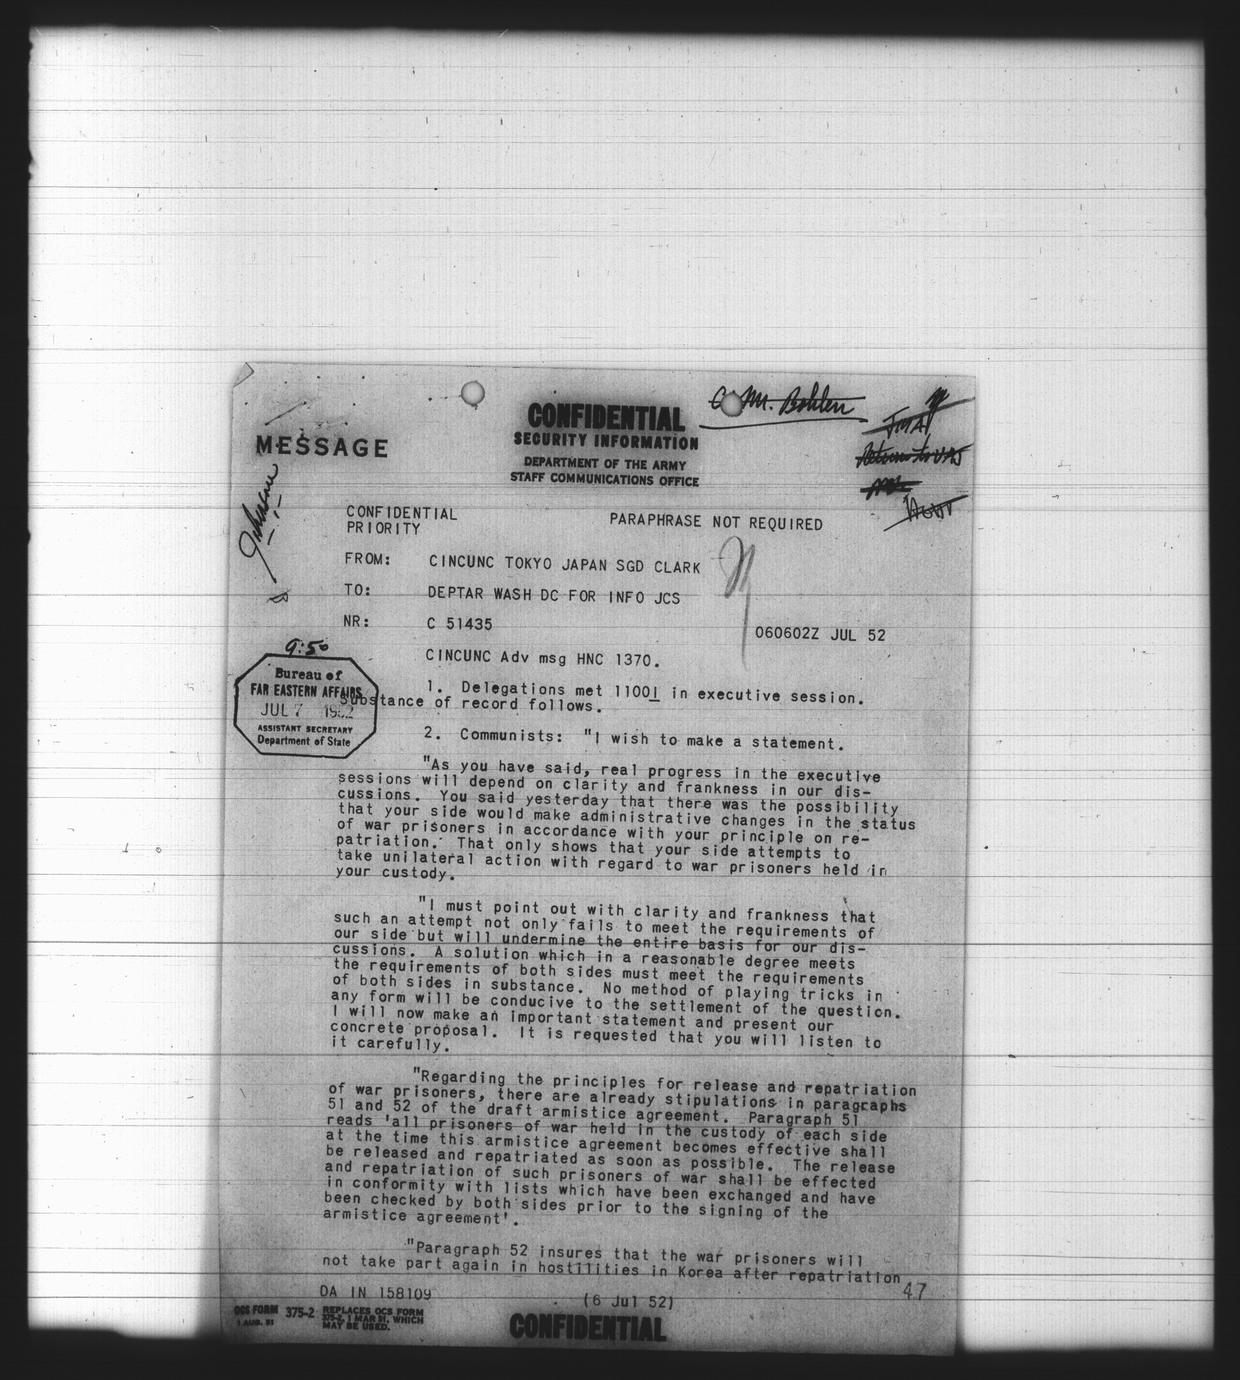 C. M. Bohlen
CONFIDENTIAL
SECURITY INFORMATION
MESSAGE
DEPARTMENT OF THE ARMY
STAFF COMMUNICATIONS OFFICE
Johnson
CONFIDENTIAL
PARAPHRASE NOT REQUIRED
PRIORITY
FROM: CINCUNC TOKYO JAPAN SGD CLARK
TO: DEPTAR WASH DC FOR INFO JCS
NR: C 51435
060602Z JUL 52
CINCUNC Adv msg HNC 1370.
9:50
Bureau of
FAR EASTERN AFFAIRS
JUL 7 1952
ASSISTANT SECRETARY
Department of State
1. Delegations met 1100I in executive session.
Substance of record follows.
2. Communists: "I wish to make a statement.
"As you have said, real progress in the executive
sessions will depend on clarity and frankness in our dis-
cussions. You said yesterday that there was the possibility
that your side would make administrative changes in the status
of war prisoners in accordance with your principle on re-
patriation. That only shows that your side attempts to
take unilateral action with regard to war prisoners held in
your custody.
"I must point out with clarity and frankness that
such an attempt not only fails to meet the requirements of
our side but will undermine the entire basis for our dis-
cussions. A solution which in a reasonable degree meets
the requirements of both sides must meet the requirements
of both sides in substance. No method of playing tricks in
any form will be conducive to the settlement of the question.
I will now make an important statement and present our
concrete proposal. It is requested that you will listen to
it carefully.
"Regarding the principles for release and repatriation
of war prisoners, there are already stipulations in paragraphs
51 and 52 of the draft armistice agreement. Paragraph 51
reads 'all prisoners of war held in the custody of each side
at the time this armistice agreement becomes effective shall
be released and repatriated as soon as possible. The release
and repatriation of such prisoners of war shall be effected
in conformity with lists which have been exchanged and have
been checked by both sides prior to the signing of the
armistice agreement'.
"Paragraph 52 insures that the war prisoners will
not take part again in hostilities in Korea after repatriation
DA IN 158109
(6 Jul 52)
47
OCS FORM 375-2
1 AUG. 51
REPLACES OCS FORM
375-2, 1 MAR 51, WHICH
MAY BE USED.
CONFIDENTIAL